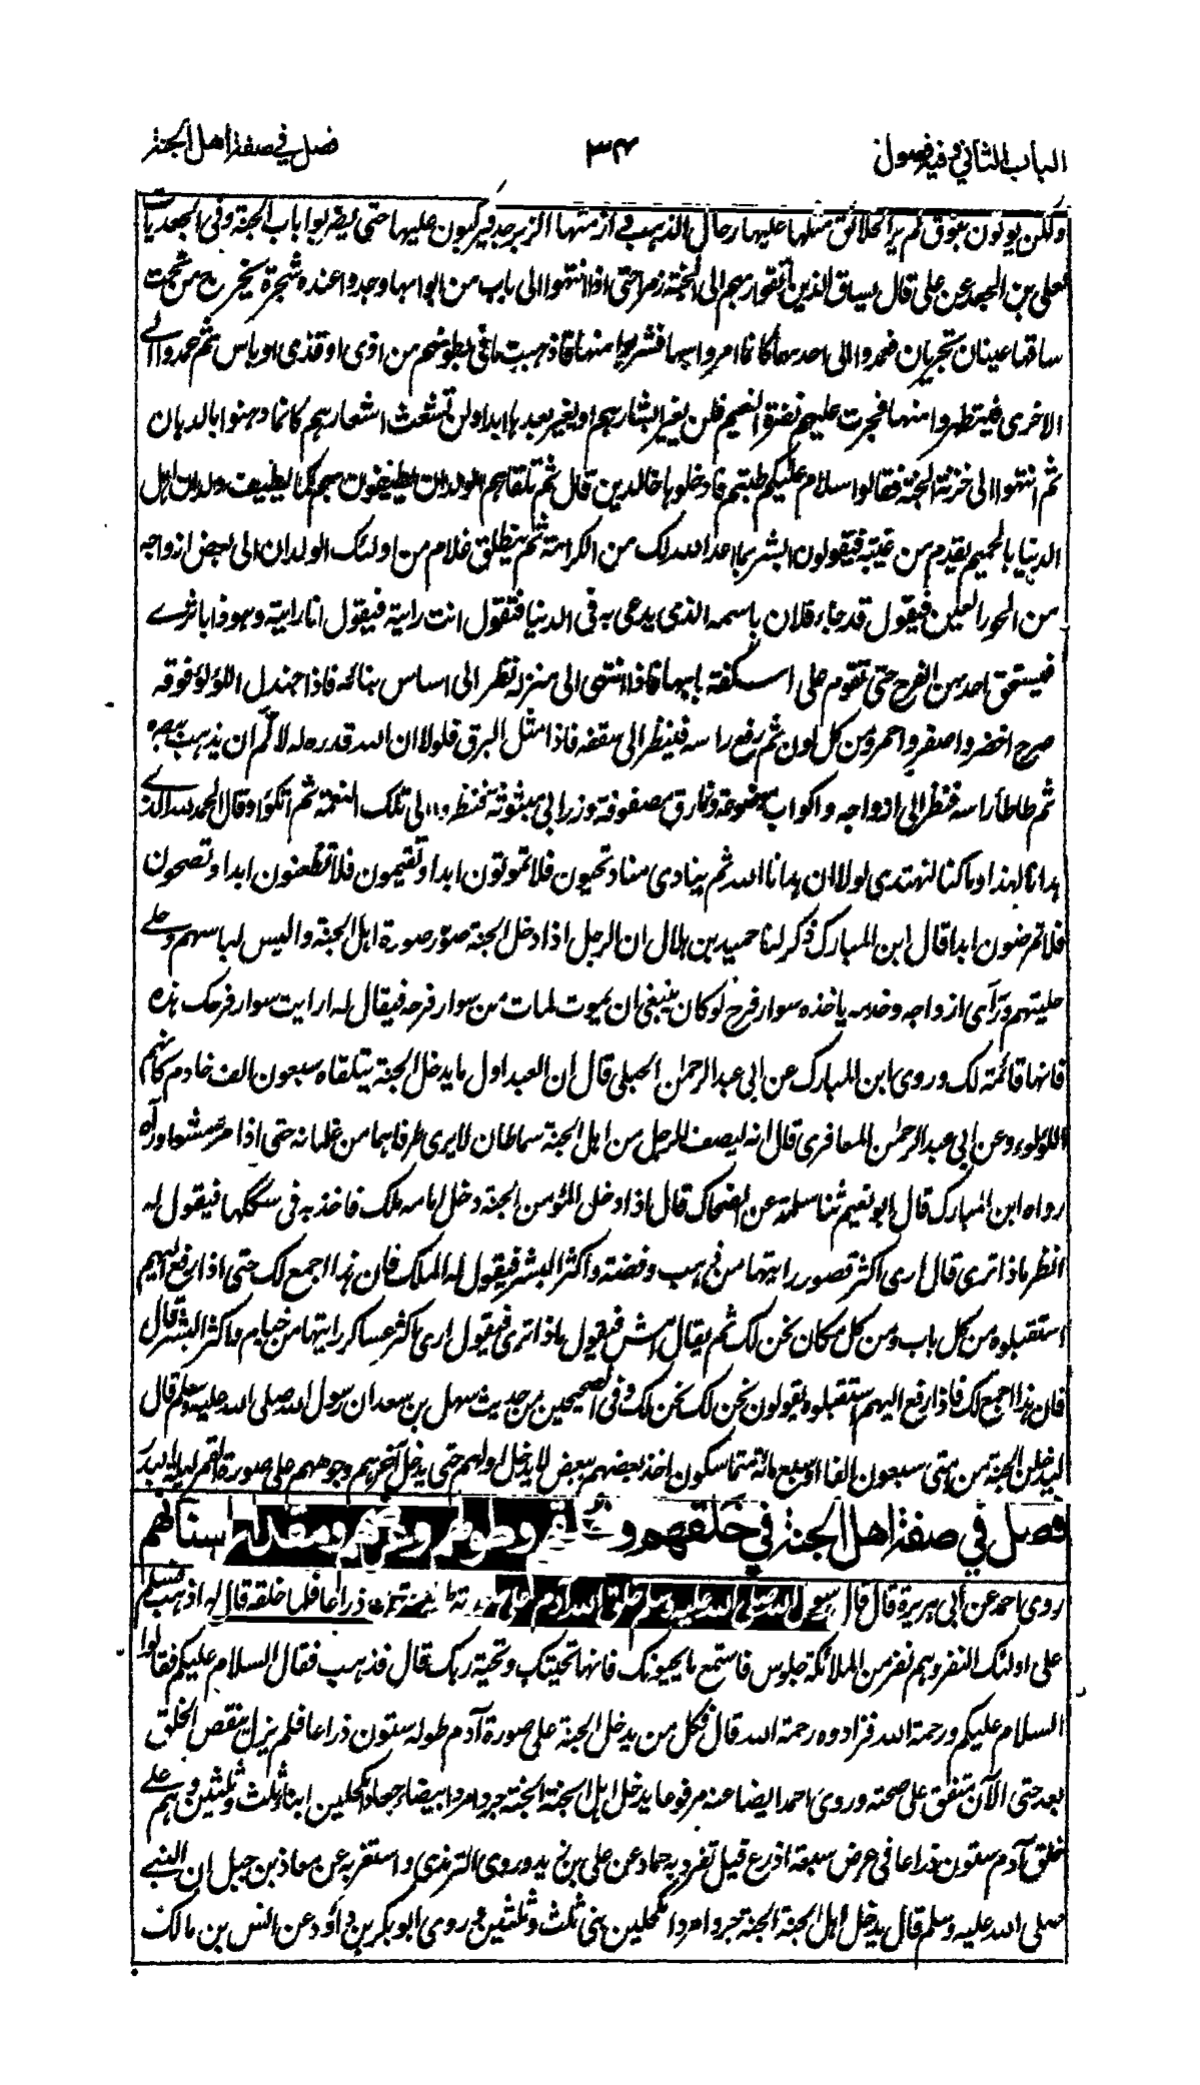 الباب الثاني وفيه فصول
٣٤
فصل في صفة اهل الجنة
ولكن يؤتون بنوق لم ير الخلائق مثلها عليها رحال الذهب وازمتها الزبرجد فيركبون عليها حتى يضربوا باب الجنة وفى الجعديات
لعلى بن الجعد عن على قال يساق الذين اتقوا ربهم الى الجنة زمرا حتى اذا انتهوا الى باب من ابوابها وجدوا عنده شجرة يخرج من تحت
ساقها عينان تجريان فعمدوا الى احدهما كانما امروا بها فشربوا منها فاذهبت ما فى بطونهم من اذى او قذى او باس ثم عمدوا الى
الاخرى فيتطهروا منها فجرت عليهم نضرة النعيم فلن يغير ابشارهم او تغير بعدها ابدا ولن تشعث اشعارهم كانما دهنوا بالدهان
ثم انتهوا الى خزنة الجنة فقالوا سلام عليكم طبتم فادخلوها خالدين قال ثم تلقاهم الولدان يطيفون بهم كما يطيف ولدان اهل
الدنيا بالحميم يقدم من غيبته فيقولون ابشر بما اعد الله لك من الكرامة ثم ينطلق غلام من اولئك الولدان الى بعض ازواجه
من الحور العين فيقول قد جاء فلان باسمه الذى يدعى به فى الدنيا فتقول انت رايته فيقول انا رايته وهو ذا باثرى
فيستخف احدهن الفرح حتى تقوم على اسكفة بابها فاذا انتهى الى منزله نظر الى اساس بنائه فاذا جندل اللؤلؤ فوقه
صرح اخضر واصفر واحمر ومن كل لون ثم رفع راسه فينظر الى سقفه فاذا مثل البرق فلولا ان الله قدره له لالم ان يذهب ببصره
ثم طاطأ راسه فنظر الى ازواجه واكواب موضوعة ونمارق مصفوفة وزرابى مبثوثة فنظروا الى تلك النعمة ثم اتكؤا وقال الحمد لله الذى
هدانا لهذا وما كنا لنهتدى لولا ان هدانا الله ثم ينادى مناد تحيون فلا تموتون ابدا وتقيمون فلا تظعنون ابدا وتصحون
فلا تمرضون ابدا قال ابن المبارك ذكر لنا حميد بن هلال ان الرجل اذا دخل الجنة صوّر صورة اهل الجنة والبس لباسهم وحلى
حليتهم ورآى ازواجه وخدمه ياخذه سوار فرح لو كان ينبغى ان يموت لمات من سوار فرحه فيقال له ارايت سوار فرحك هذه
فانها قائمة لك وروى ابن المبارك عن ابى عبد الرحمن الحبلى قال ان العبد اول ما يدخل الجنة يتلقاه سبعون الف خادم كانهم
اللؤلوء وعن ابى عبد الرحمن المعافرى قال انه ليصف للرجل من اهل الجنة سماطان لا يرى طرفاهما من غلمانه حتى اذا مر مشوا وراه
رواه ابن المبارك قال ابو نعيم ثنا سلمة عن الضحاك قال اذا دخل المؤمن الجنة دخل امامه ملك فاخذ به فى سككها فيقول له
انظر ماذا ترى قال ارى اكثر قصور رايتها من ذهب وفضة واكثر البشر فيقول له الملك فان هذا اجمع لك حتى اذا رفع اليهم
استقبلوه من كل باب ومن كل مكان نحن لك ثم يقال امش فيقول ماذا ترى فيقول ارى اكثر عساكر رايتها من خيام واكثر البشر قال
فان هذا اجمع لك فاذا رفع اليهم استقبلوه يقولون نحن لك نحن لك وفى الصحيحين من حديث سهل بن سعد ان رسول الله صلى الله عليه وسلم قال
ليدخلن الجنة من امتى سبعون الفا او سبع مائة متماسكون اخذ بعضهم ببعض لا يدخل اولهم حتى يدخل آخرهم وجوههم على صورة القمر ليلة البدر
فصل في صفة اهل الجنة في خلقهم وخلقهم وطولهم وعرضهم ومقدار اسنانهم
روى احمد عن أبى هريرة قال قال رسول الله صلى الله عليه وسلم خلق الله آدم على صورته طوله ستون ذراعا فلما خلقه قال له اذهب فسلم
على اولئك النفر وهم نفر من الملائكة جلوس فاستمع ما يحيونك فانها تحيتك وتحية ربك قال فذهب فقال السلام عليكم فقالوا
السلام عليكم ورحمة الله فزادوه رحمة الله قال فكل من يدخل الجنة على صورة آدم طوله ستون ذراعا فلم يزل ينقص الخلق
بعد حتى الآن متفق على صحته وروى احمد ايضا عنه مرفوعا يدخل اهل الجنة الجنة جردا مردا بيضا جعادا مكحلين ابناء ثلث وثلثين وهم على
خلق آدم ستون ذراعا فى عرض سبعة اذرع قيل تفرد به حماد عن على بن زيد وروى الترمذى واستغربه عن معاذ بن جبل ان النبى
صلى الله عليه وسلم قال يدخل اهل الجنة الجنة جردا مردا مكحلين بنى ثلث وثلثين وروى ابو بكر بن ابى داؤد عن انس بن مالك